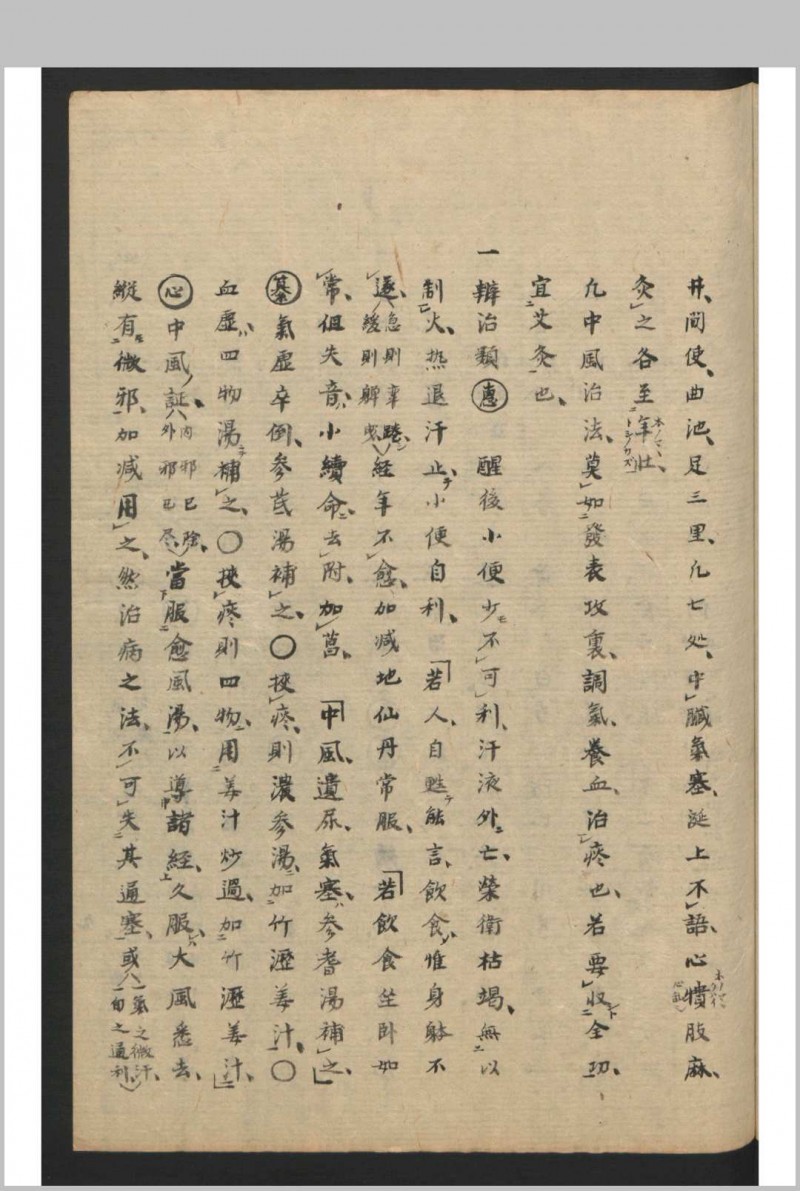 井、間使、曲池、足三里、凢七処、中臓氣塞、涎上不語、心憒肢麻、
灸之各至年壮、
凢中風治法、莫如發表攻裏、調氣、養血、治痰也、若要收全功、
宜艾灸也、
一 辯治類 醒後小便少不可利、汗液外亡、榮衛枯竭、無以
制火、热退汗止、小便自利、若人、自甦能言、飲食惟身躰不
遂、急則攣踡 緩則軃曳 経年不愈、加减地仙丹常服、若飲食坐卧如
常、但失音、小續命、去附、加菖、中風、遺尿、氣塞、参耆湯補之、
氣虚卒倒、参芪湯補之、〇挾痰、則濃参湯、加竹瀝姜汁、〇
血虚、四物湯補之、〇挾痰則四物、用姜汁炒過、加竹瀝姜汁、
心 中風証、内邪已除、外邪已尽 當服愈風湯、以導諸経、久服、大風悉去、
縦有微邪、加减用之、然治病之法、不可失其通塞、或 一氣之微汗、一旬之通利